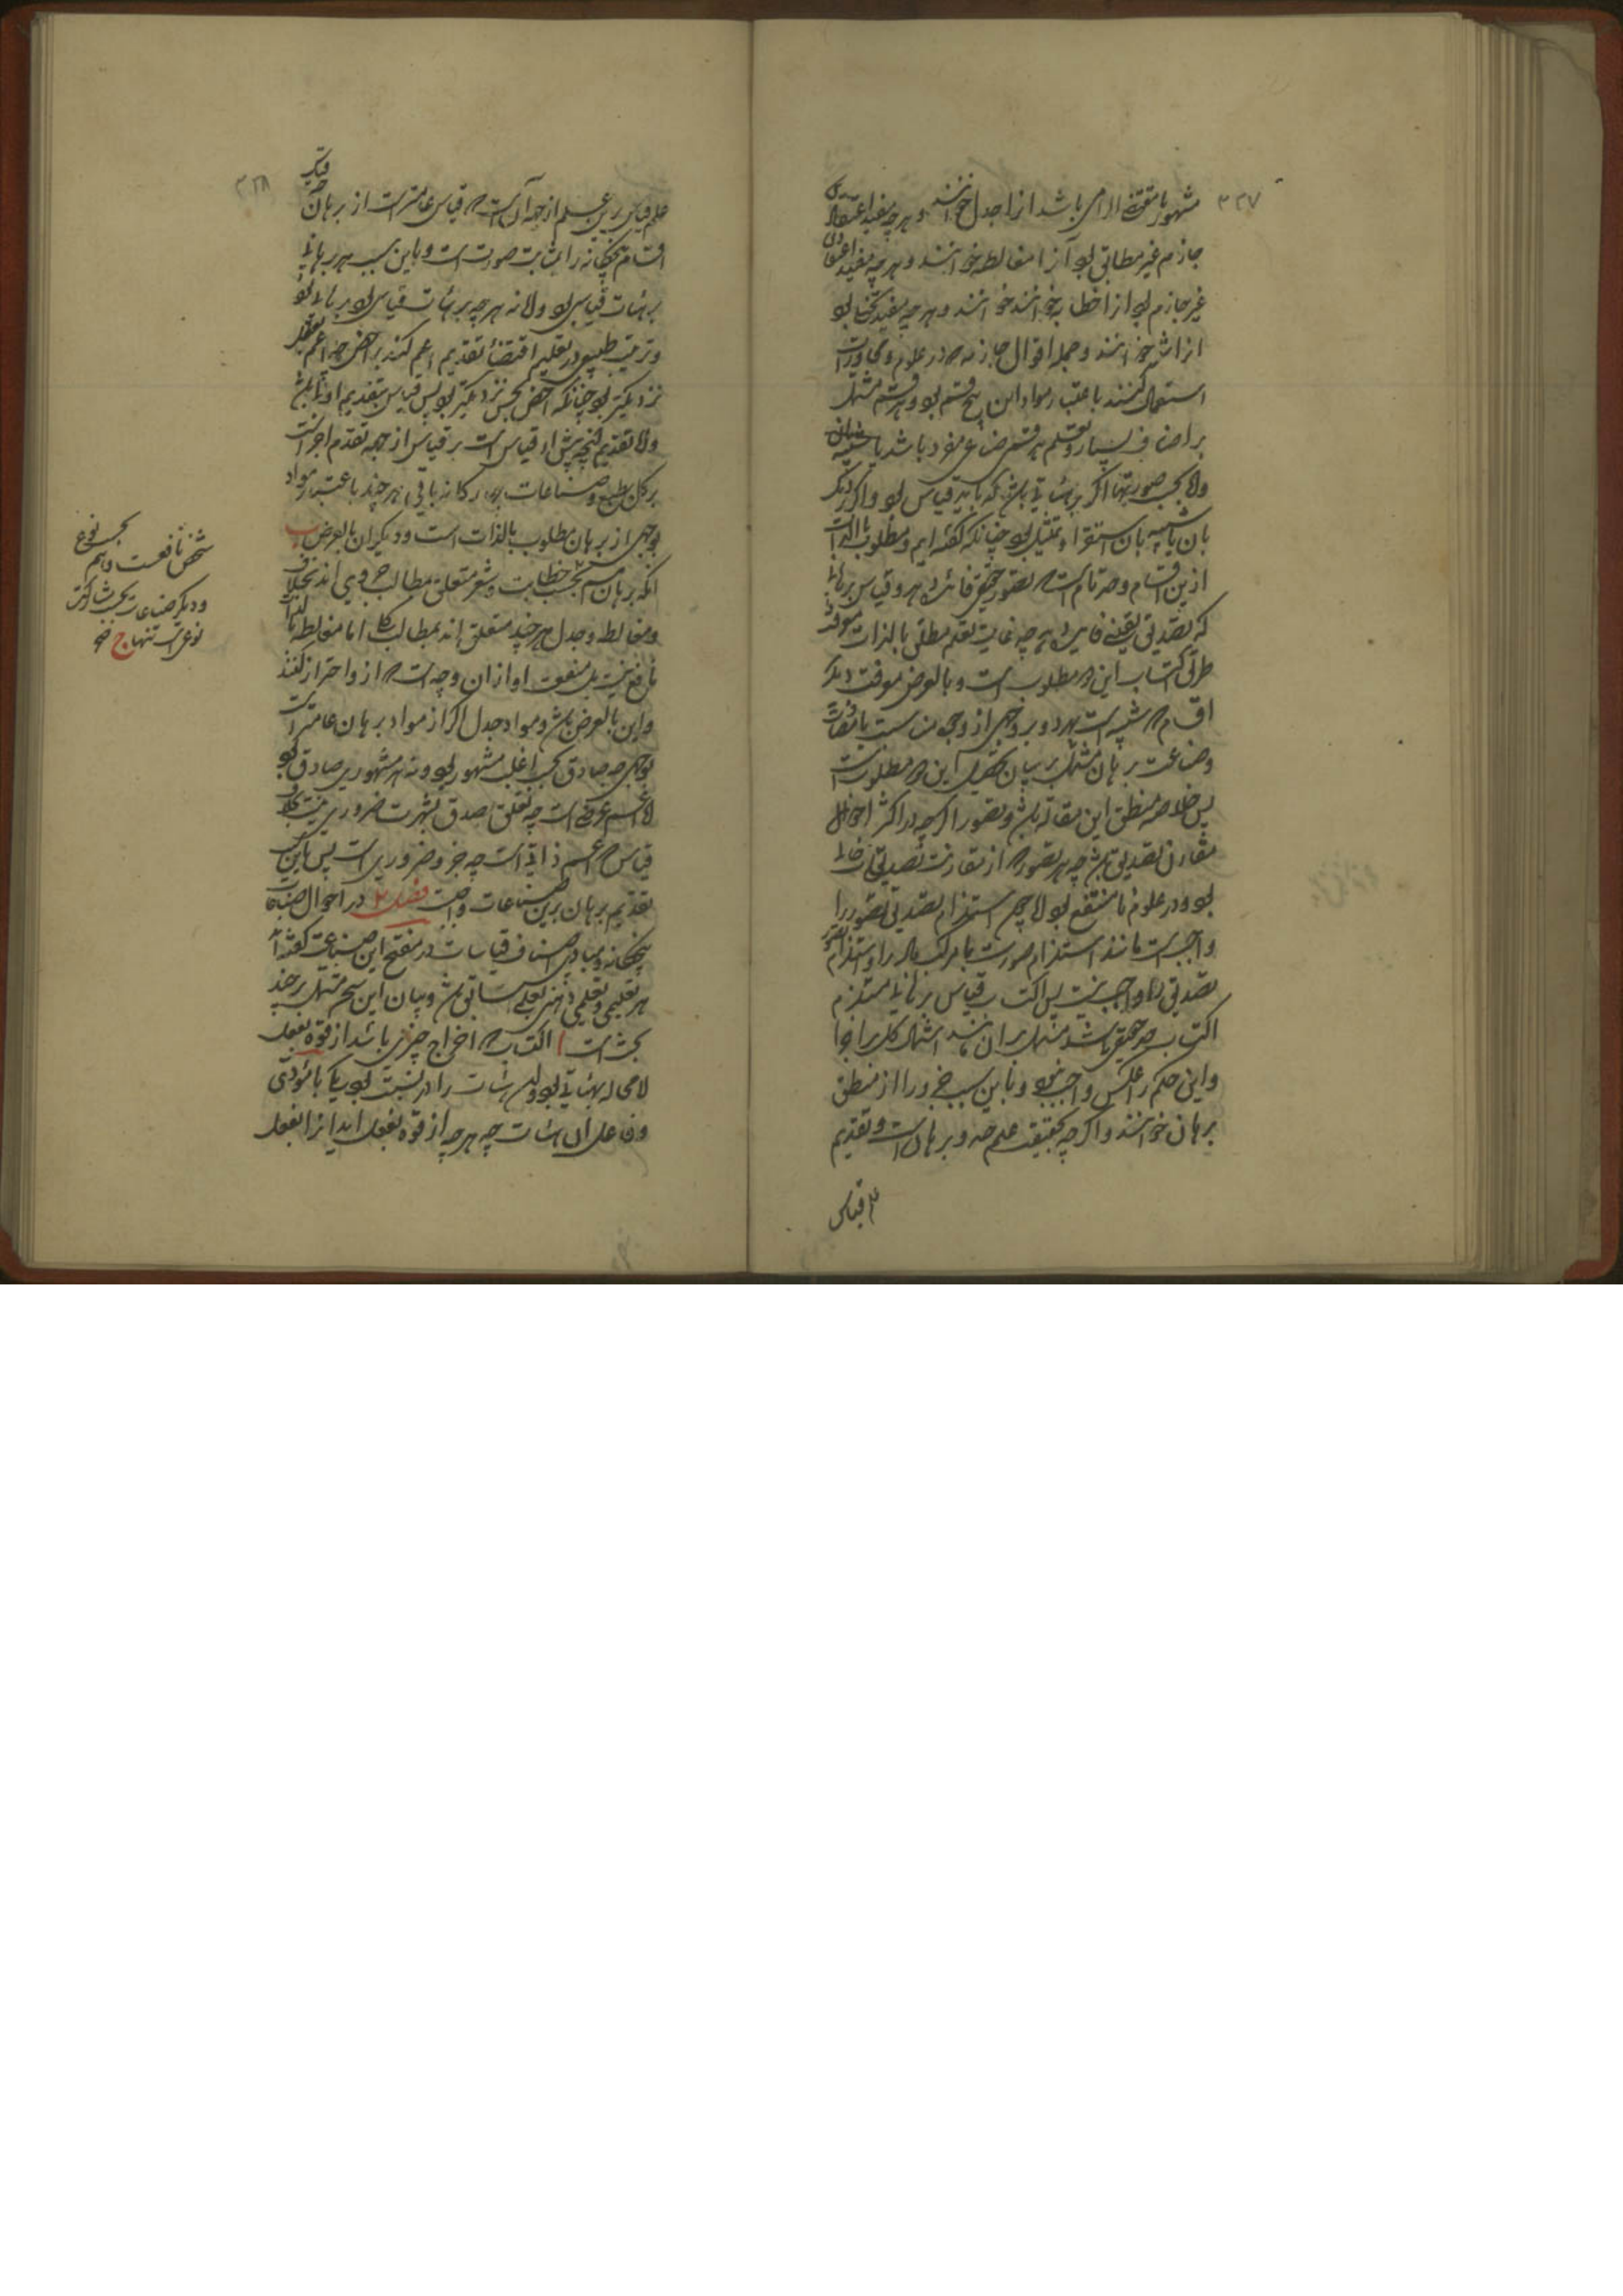 ۳۲۷
مشهور یا مقتضی الزامی باشد از جدل خوانند و هرچه مفید اعتقادی
جازم غیر مطابق بود آنرا مغالطه خوانند و هرچه مفید اعتقادی
غیر جازم بود انرا خطابه خوانند و هرچه مفید تخیل بود
انرا شعر خوانند و جمله اقوال جازمه که در علوم و محاورات
استعمال کنند باعتبار مواد این پنج قسم بود و هر قسم مشتمل
بر اصناف بسیار و تعلیم هر قسم صناعتی مفرد باشد یا شبیه بان
ولا بحسب صورت تنها اگر برهیات تالیفی باشد که باید قیاس بود و اگر نزدیک
بان یا شبیه بان استقرا و تمثیل بود چنانکه گفته ایم و مطلوب بالذات
ازین اقسام و حد تام است که تصور حقیقی فائده دهد و قیاس برهانی
که تصدیق یقینی فایده دهد چه غایت تعلم مطلق بالذات معرفت
طرق اکتساب این دو مطلوب است و بالعرض معرفت دیگر
اقسام که شبیه است بهر دو بر وجهی از وجوه مناسبت یا مفارقت
و صناعت برهان مشتمل بر بیان تحصیل این دو مطلوب است
پس خلاصه منطق این مقاله باشد و تصور اگرچه در اکثر احوال
مقارن تصدیقی باشد چه هر تصور که از مقارنت تصدیق خالی
بود در علوم نامنتفع بود لا چون استلزام تصدیق تصور را
واجب است مانند استلزام صورت یا مرکب ماده را و استلزام تصور
تصدیق را واجب نیست پس اکتساب قیاس برهانی مستلزم
اکتساب حد حقیقی باشد و مشتمل بر ان مانند اشتمال کل بر اجزا
و این حکم را عکس واجب نبود و باین سبب جزو را از منطق
برهان خوانند و اگرچه بحقیقت علم حد و برهان است و تقدیم
علم قیاس
۳۲۸
علم قیاس برین علم از جهة آنست که قیاس عامتر است از برهان چه قیاس
اقسام پنجگانه را بمثابت صورت است و باین سبب هر برهانی
برهیات قیاس بود ولا نه هرچه برهیات قیاس بود برهانی بود
و ترتیب طبیعی در تعلیم اقتضاء تقدیم اعم کند بر اخص چه اعم بعقل
نزدیکتر بود چنانکه اخص بحس نزدیکتر بود پس قیاس بتقدیم اولی باشد
ولا تقدیم آنچه پیش از قیاس است بر قیاس از جهة تقدم اجزا است
بر کل بطبع و صناعات چهارگانه باقی هرچند باعتبار مواد
بوجهی از برهان مطلوب بالذات است و دیگران بالعرض ب
انکه برهان هم بحسب خطابت و شعر متعلق مطالب جزوی اند بخلاف
و مغالطه و جدل هرچند متعلق اند بمطالب کلی اما مغالطه بالذات
نافع نیست بل منفعت او از ان وجه است که از و احتراز کنند
و این بالعرض باشد و مواد جدل اگر از مواد برهان عامتر است
بوجهی چه صادق بحسب اغلب مشهور بود و نه هر مشهوری صادق بود
لا اعم عرضی است چه تعلق صدق بشهرت ضروری نیست بخلاف
قیاس که اعم ذاتی است چه جزو ضروری است پس باین سبب
تقدیم برهان برین صناعات واجبست فصل ۲ در احوال صناعات
پنجگانه و مبادی اصناف قیاسات در مفتتح این صناعت گفته اند
هر تعلیمی و تعلمی ذهنی بعلمی سابق باشد و بیان این سخن مشتمل بر چند
بحث است ا اکتساب که اخراج چیزی باشد از قوه بفعل
لا محاله بهیاتی بود و ان هیات را دو نسبت بود یکی با مؤدی
و فاعل ان هیات چه هرچه از قوه بفعل اید انرا بفعل
بحسب نوع
شخص نافعست و هم
و دیگر صناعات بحسب مشارکت
نوعی است تنها ج